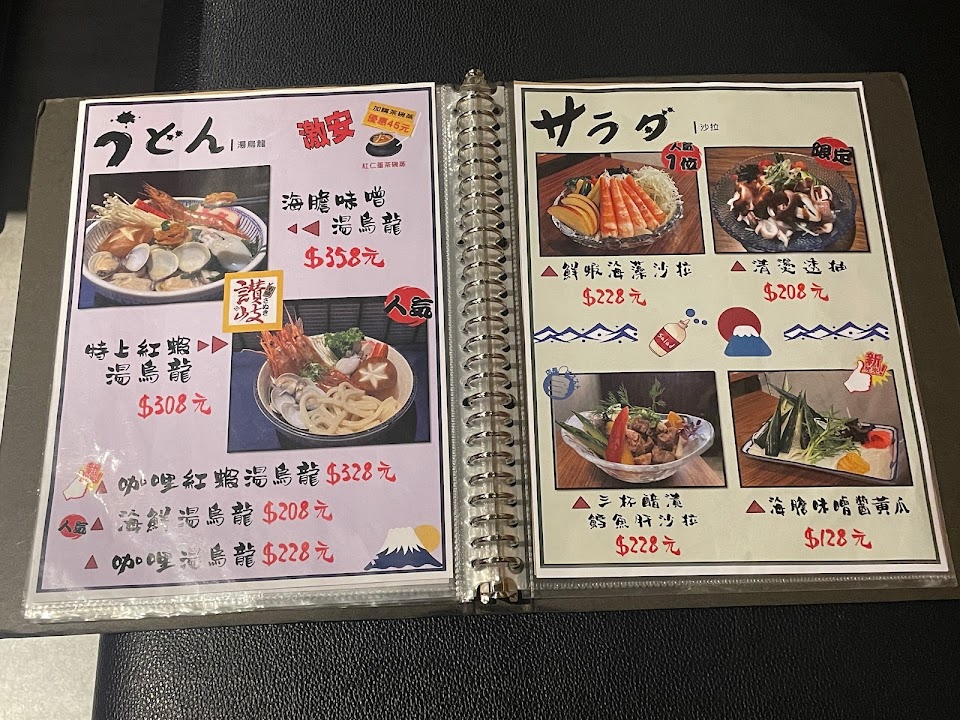 うどん
湯烏龍
激安
加購茶碗蒸
優惠45元
紅仁蛋茶碗蒸
海膽味噌
湯烏龍
$358元
讃岐
さぬき
人気
特上紅蝦
湯烏龍
$308元
新
咖哩紅蝦湯烏龍 $328元
人気
海鮮湯烏龍 $208元
咖哩湯烏龍 $228元
サラダ
沙拉
人気
1位
限定
鮮蝦海藻沙拉
$228元
清燙透抽
$208元
salad
新
三杯醋漬
鱈魚肝沙拉
$228元
海膽味噌醬黃瓜
$128元